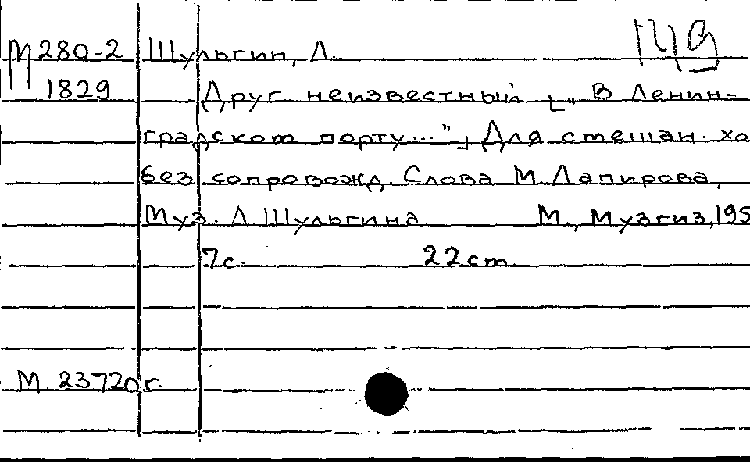 М280-2 Шульгин, Л.
1829 Друг неизвестный [„В Ленин-
градском порту..."] Для смешан. хо
без сопровожд. Слова М. Лапирова,
Муз. Л. Шульгина М., Музгиз, 195
7с. 22 ст.
М 23720г.